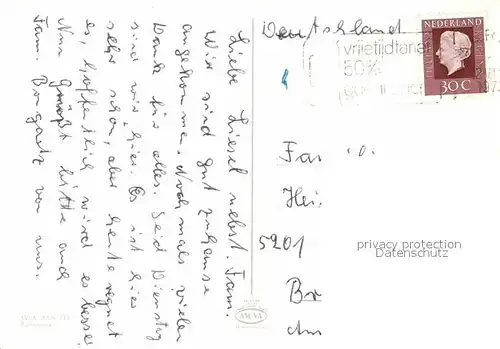 Liebe Liesel nebst Fam.
Wir sind gut zuhause
angekommen. Nochmals vielen
Dank für alles. Seid Dienstag
sind wir hier. Es ist hier
sehr schön, aber heute regnet
es, hoffentlich wird es besser
Nun grüßt bitte auch
Fam. von uns.
Deutschland
NEDERLAND
30 C
50%
Fa
Hei
5201
Br
Am
privacy protection
Datenschutz